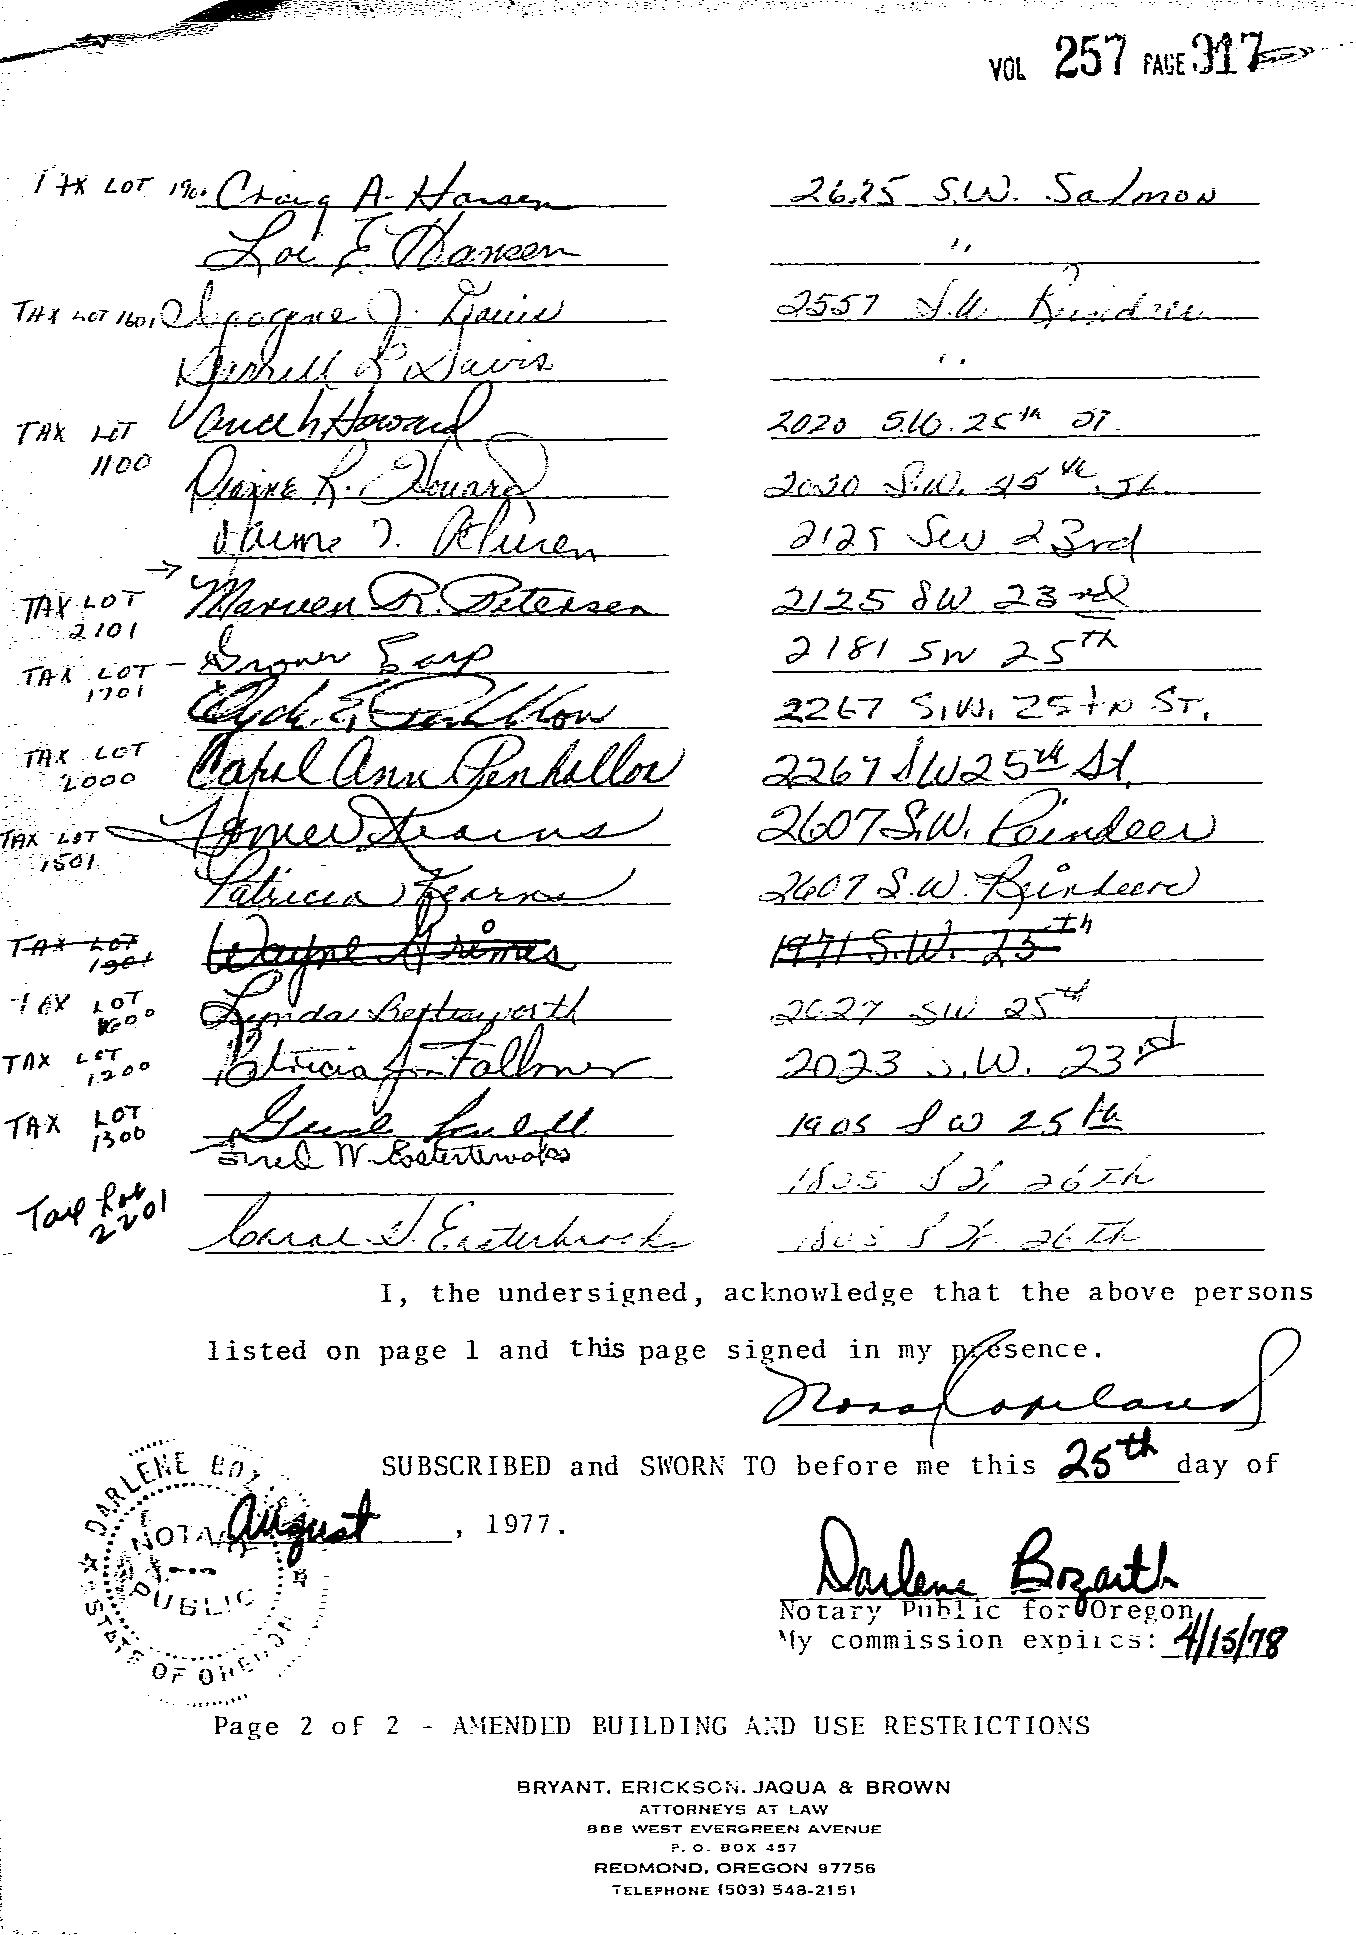 VOL 257 PAGE 317
TAX LOT 190. Craig A. Hansen 2625 S.W. Salmon
Loi E. Hansen "
TAX LOT 1601 J. Davis 2557 S.W.
Darrell L Davis "
TAX LOT Howard 2020 S.W. 25th ST.
1100
Dianne R. Howard 2020 S.W. 25th St.
2125 SW 23rd
→
TAX LOT Marveen R. Petersen 2125 SW 23rd
2101
TAX LOT - Grover Earp 2181 SW 25TH
1701
Clyde E. Penhollow 2267 S.W. 25th ST.
TAX LOT Carol Ann Penhollow 2267 SW 25th St.
2000
TAX LOT 2607 S.W. Reindeer
1501
Patricia 2607 S.W. Reindeere
TAX LOT Wayne Grimes 1971 S.W. 23th
1301
TAX LOT Lynda 2627 SW 25th
1600
TAX LOT Patricia J. Fallmer 2023 S.W. 23rd
1200
TAX LOT 1905 S W 25th
1300
Fred W. 26Th
Tax Lot
2201
Carol Easterbrook 26Th
I, the undersigned, acknowledge that the above persons
listed on page 1 and this page signed in my presence.
Nora Copeland
SUBSCRIBED and SWORN TO before me this 25th day of
August, 1977.
DARLENE BOZ
NOTARY
PUBLIC
STATE OF OREGON
Darlene Bozarth
Notary Public for Oregon
My commission expires: 4/15/78
Page 2 of 2 - AMENDED BUILDING AND USE RESTRICTIONS
BRYANT, ERICKSON, JAQUA & BROWN
ATTORNEYS AT LAW
888 WEST EVERGREEN AVENUE
P. O. BOX 457
REDMOND, OREGON 97756
TELEPHONE (503) 548-2151